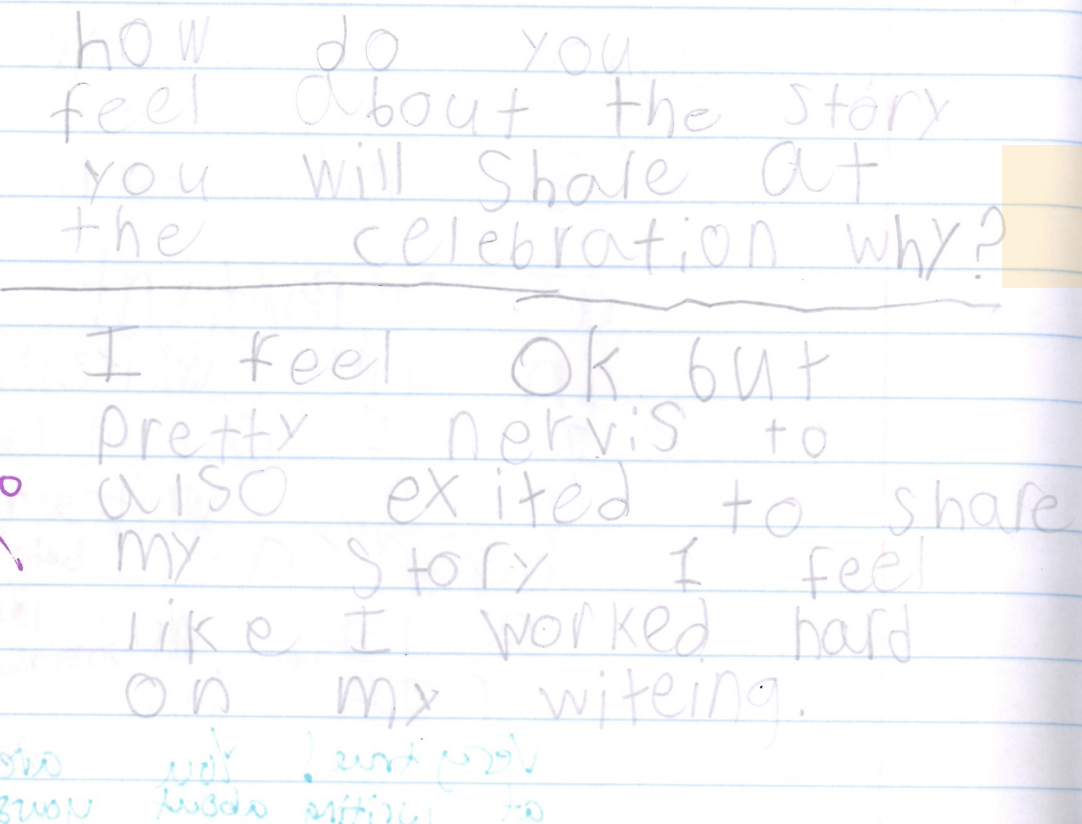 how do you
feel about the story
you will Share at
the celebration why?
I feel Ok but
pretty nervis to
also exited to share
my story I feel
like I worked hard
on my witeing.
very true! You are